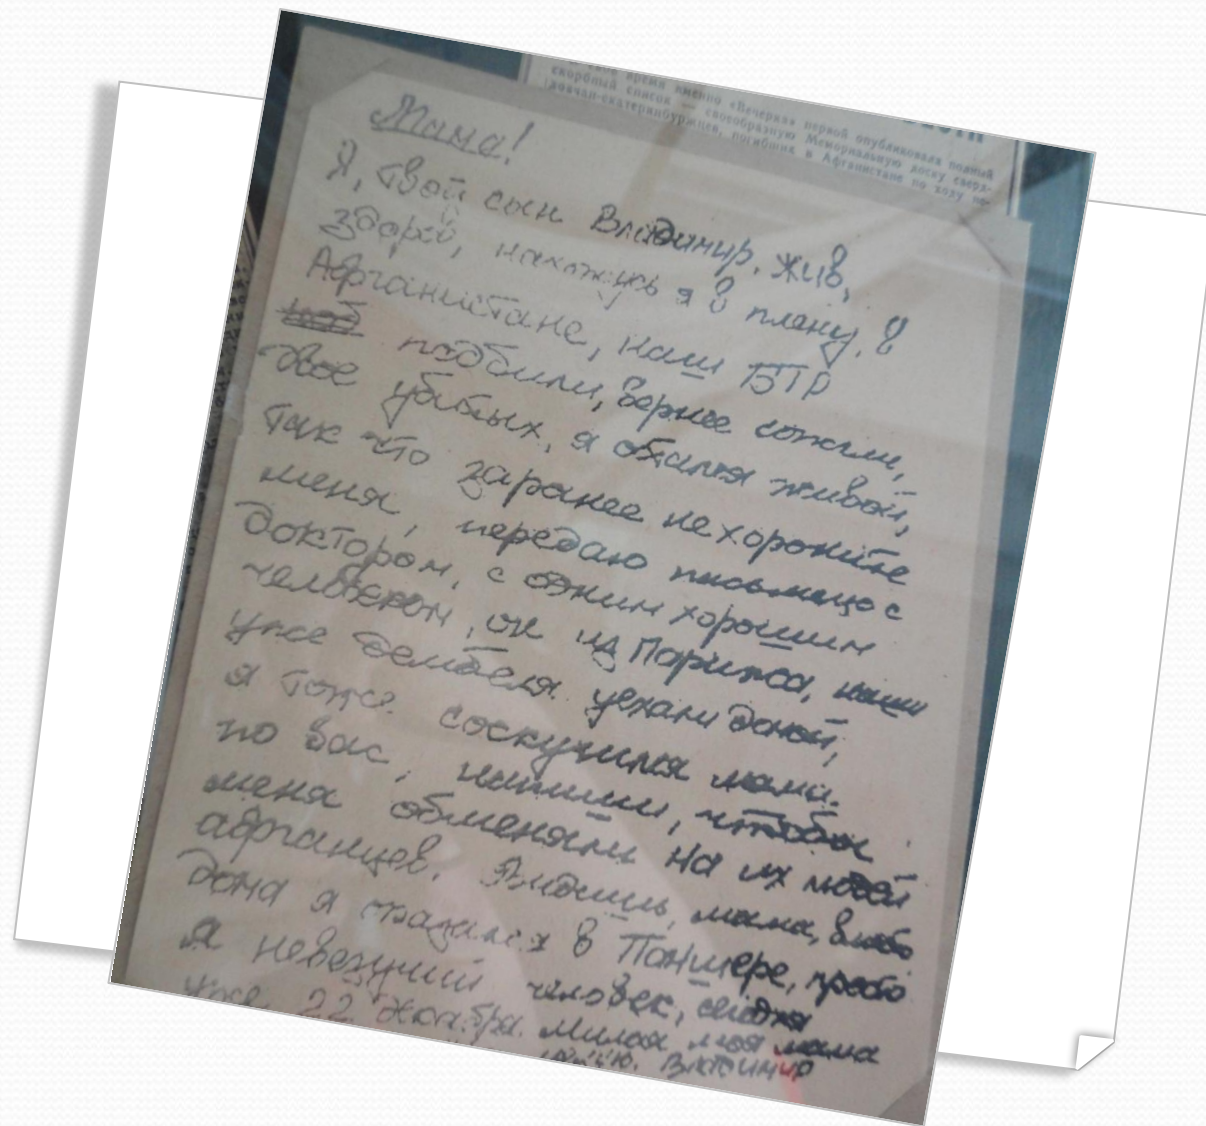 время именно «Вечерка» первой опубликовала полный
скорбный список — своеобразную Мемориальную доску сверд-
ловчан-екатеринбуржцев, погибших в Афганистане по ходу не-
Мама!
Я, твой сын Владимир, жив,
здоров, нахожусь я в плену, в
Афганистане, наш БТР
подбили, вернее сожгли,
двое убитых, я остался живой,
так что заранее не хороните
меня, передаю письмецо с
доктором, с одним хорошим
человеком, он из Парижа, наши
уже дембеля уехали домой,
я тоже соскучился мама.
по вас, напиши, чтобы
меня обменяли на их людей
афганцев. Видишь, мама, вместо
дома я оказался в Паншере, просто
я невезучий человек, сегодня
уже 22 декабря. Милая моя мама
Владимир